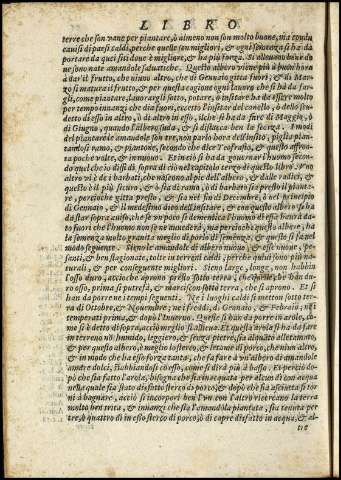 LIBRO
terre che son vane per piantare, ò almeno non son molto buone, ma condu
causi di paesi caldi, perche quelle son migliori, & ogni semenza si ha da
portare da quei siti dove è migliore, & ha più forza. Si allevano
ne sono nate amandole salvatiche. Questo albero viene più à buon'hora
à dar il frutto, che niuno altro, che di Gennaio gitta fuori, & di Mar-
zo si matura il frutto, & per questa cagione ogni lavoro che si ha da far
gli, come piantare, lavorargli sotto, potare, ò inestare ha da essere molto
per tempo innanzi che dia fuori, eccetto l'inestar del canello, ò dello scu-
detto di esso in altro, ò di altro in esso, ilche si ha da fare di Maggio, ò
di Giugno, quando l'albero suda, & si distacca ben la scorza. I modi
del piantarle le amandole son tre, non parlo hora dell'inesto, piglia pian-
tandosi ramo, & piantone, secondo che dice Teofrasto, & questo affron-
ta poche volte, & in niuno. Et in ciò si ha da governar l'huomo secon-
do quel che io dissi di sopra di ciò nel capitolo terzo di questo libro. Un'
altro vi è de i barbati, che nascono al piè delli alberi, delle radici, &
questo è il più sicuro, & ò sia di ramo, ò di barbato sia presto il pianta-
re, percioche gitta presto, & sia nel fin di Decembre, ò nel principio
di Gennaio, & il medesimo dico dell'inestare, & con questo albero si ha
da star sopra aviso, che se un poco si dementica l'huomo di esse haverà da-
to fuori che l'huomo non se ne avvederà, ma perche questo albero, che
ha semenza molto granata meglio di porlo di semenza, & questo si fa nel
modo seguente. Sieno le amandole di albero nuovo, & esse nuove, pe-
santi, & ben stagionate, tolte in terreni caldi, perche quivi son più na-
turali, & per conseguente migliori. Sieno large, longe, non habbia
l'osso duro, accioche aprano presto sotto terra, che quelle che han du-
ro osso, prima si putrefà, & marcisce sotto terra, che si aprono. Et si
han da porre ne i tempi seguenti. Ne i luoghi caldi si mettono sotto ter-
ra di Ottobre, & Novembre, ne i freddi, di Gennaio, & Febraio, ne i
temperati prima, & dopò l'Inverno. Queste si han da porre in aròle, co-
me si è detto di sopra, acciò meglio si allievi. Et questa aròla si ha da fare
in terreno nò humido, leggiero, & senza pietre, sia alquanto alletamato,
& per questo albero, è meglio lo sterco di porco, che niun altro,
& in modo che ha esso forza tanta, che fa fare à un'albero di amandole
amare dolci, gabbandolo con esso, come si dirà più à basso. Et perciò do-
pò che sia fatta l'aròla, bisogna che stia in aquata per alcun dì con acqua
nella quale sia stato disfatto sterco di porco, & dopò che sia asciutta si tor-
ni à bagnare, acciò si incorpori ben l'un con l'altro et ritornano la terra
molto ben trita, & innanzi che sia l'amandola piantata, sia tenuta per
tre, ò quattro dì in esso sterco di porco, ò di capre disfatto in acqua, & al-
tre